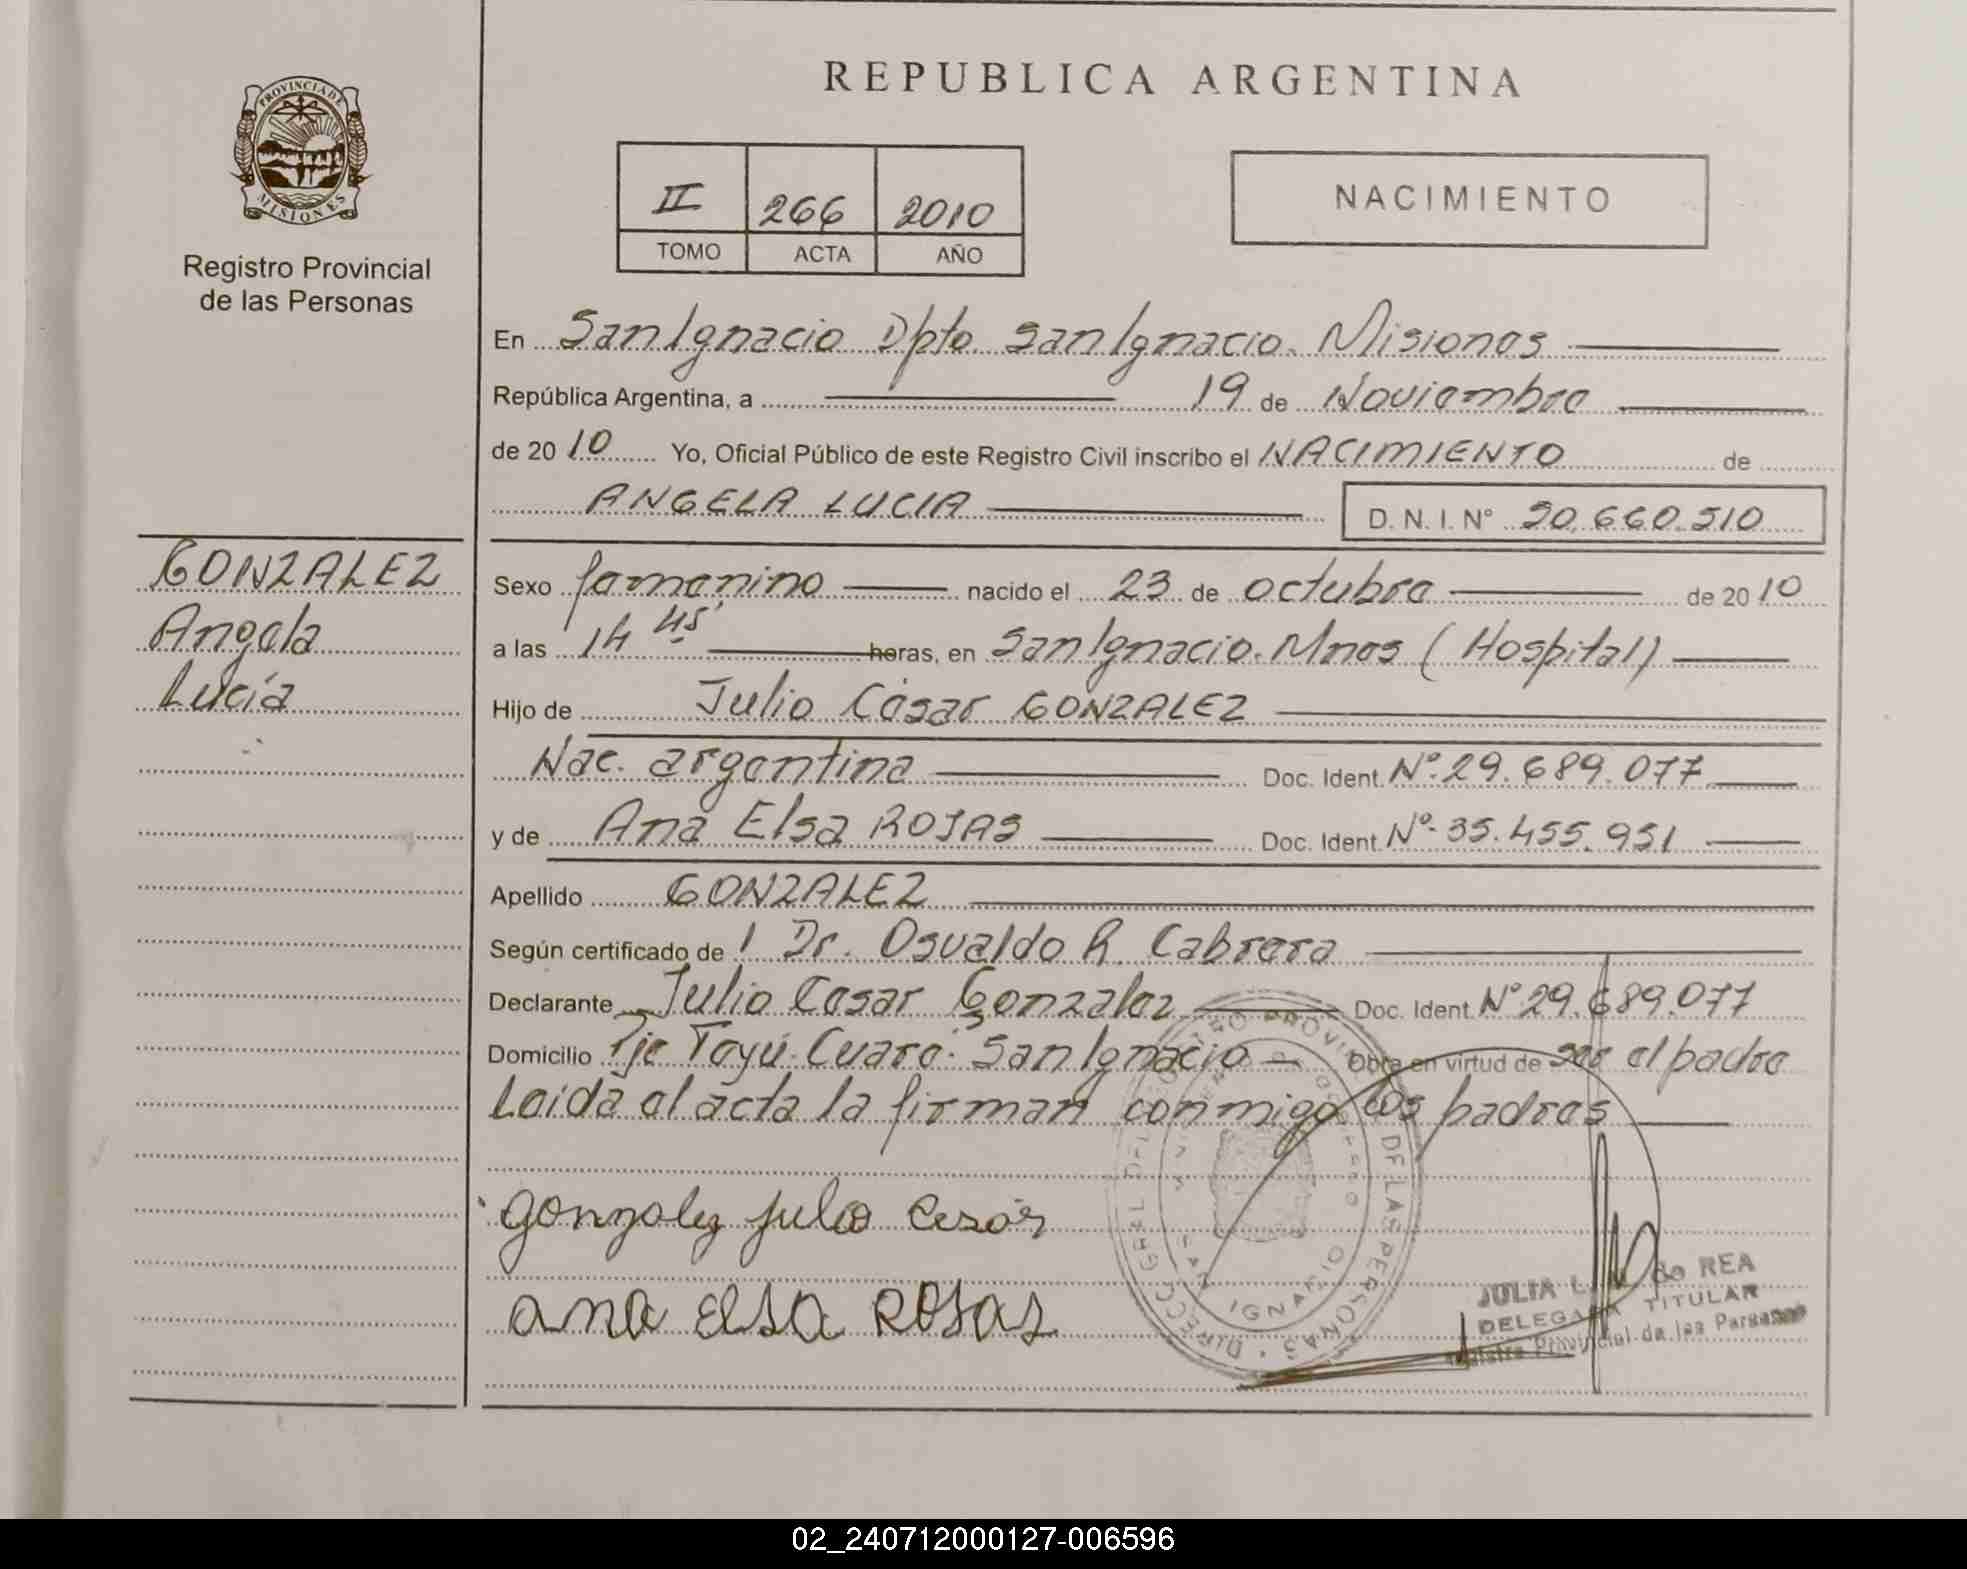 PROVINCIA DE
MISIONES
Registro Provincial
de las Personas
GONZALEZ
Angela
Lucía
REPUBLICA ARGENTINA
II 266 2010
TOMO ACTA AÑO
NACIMIENTO
En San Ignacio Dpto. San Ignacio. Misiones
República Argentina, a 19 de Noviembre
de 2010 Yo, Oficial Público de este Registro Civil inscribo el NACIMIENTO de
ANGELA LUCIA D. N. I. Nº 50.660.510
Sexo femenino nacido el 23 de octubre de 2010
a las 14 45' horas, en San Ignacio. Mnes (Hospital)
Hijo de Julio César GONZALEZ
Nac. argentina Doc. Ident. Nº 29.689.077
y de Ana Elsa ROJAS Doc. Ident. Nº 35.455.951
Apellido GONZALEZ
Según certificado de 1 Dr. Osvaldo R. Cabrera
Declarante Julio Cesar Gonzalez Doc. Ident. Nº 29.689.077
Domicilio Pje Teyú. Cuaré. San Ignacio Obra en virtud de ser el padre
Leida el acta la firman conmigo los padres
Gonzalez Julio Cesar
ana Elsa Rojas
DIRECC. GRAL. DEL REGISTRO PROVINCIAL DE LAS PERSONAS
SAN IGNACIO
JULIA L. de REA
DELEGADA TITULAR
Registro Provincial de las Personas
02_240712000127-006596